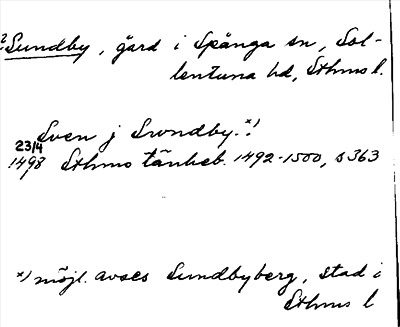 ? Sundby, gård i Spånga sn, Sol-
lentuna hd, Sthms l.
Sven j Swndby.*)
23/4
1498 Sthms tänkeb. 1492-1500, s 363
*) möjl. avses Sundbyberg, stad i
Sthms l